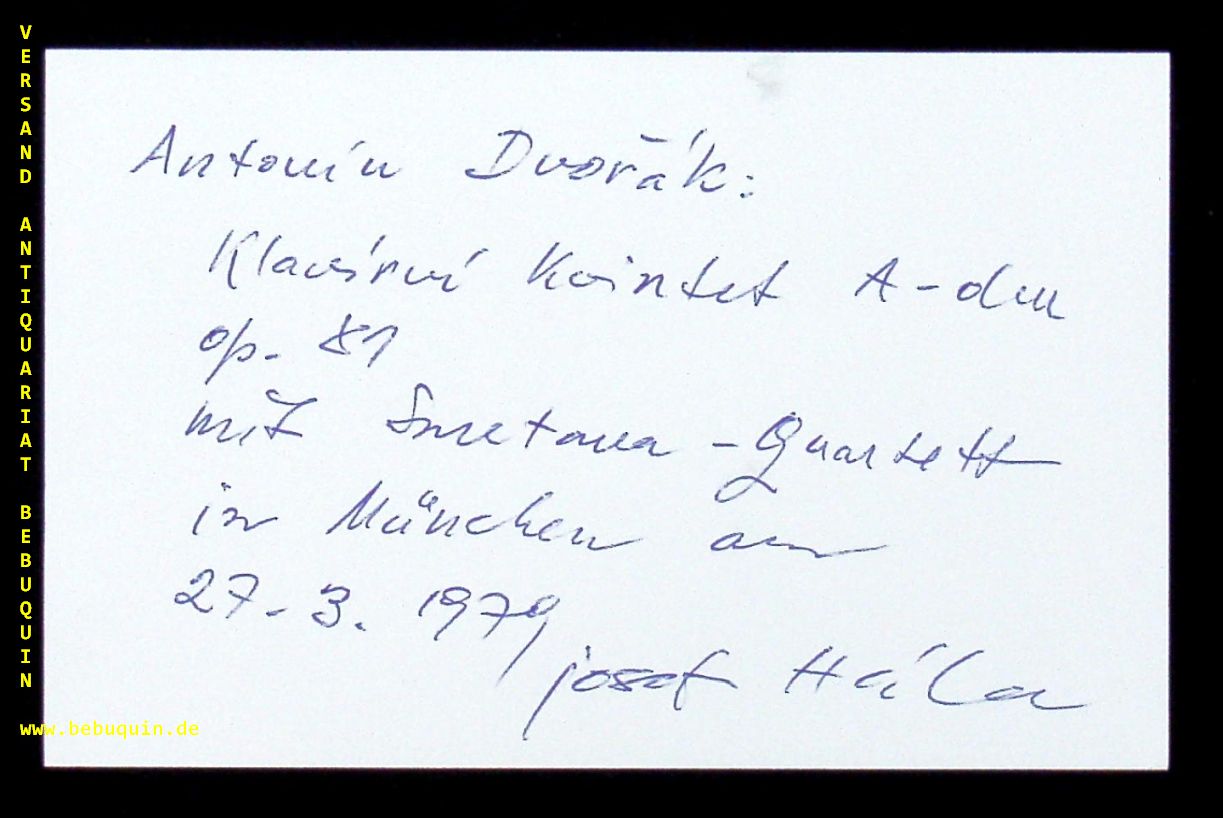 VERSAND ANTIQUARIAT BEBUQUIN
www.bebuquin.de
Antonín Dvořák:
Klavírní Kvintet A-dur
op. 81
mit Smetana-Quartett
in München am
27. 3. 1979
Josef Hála